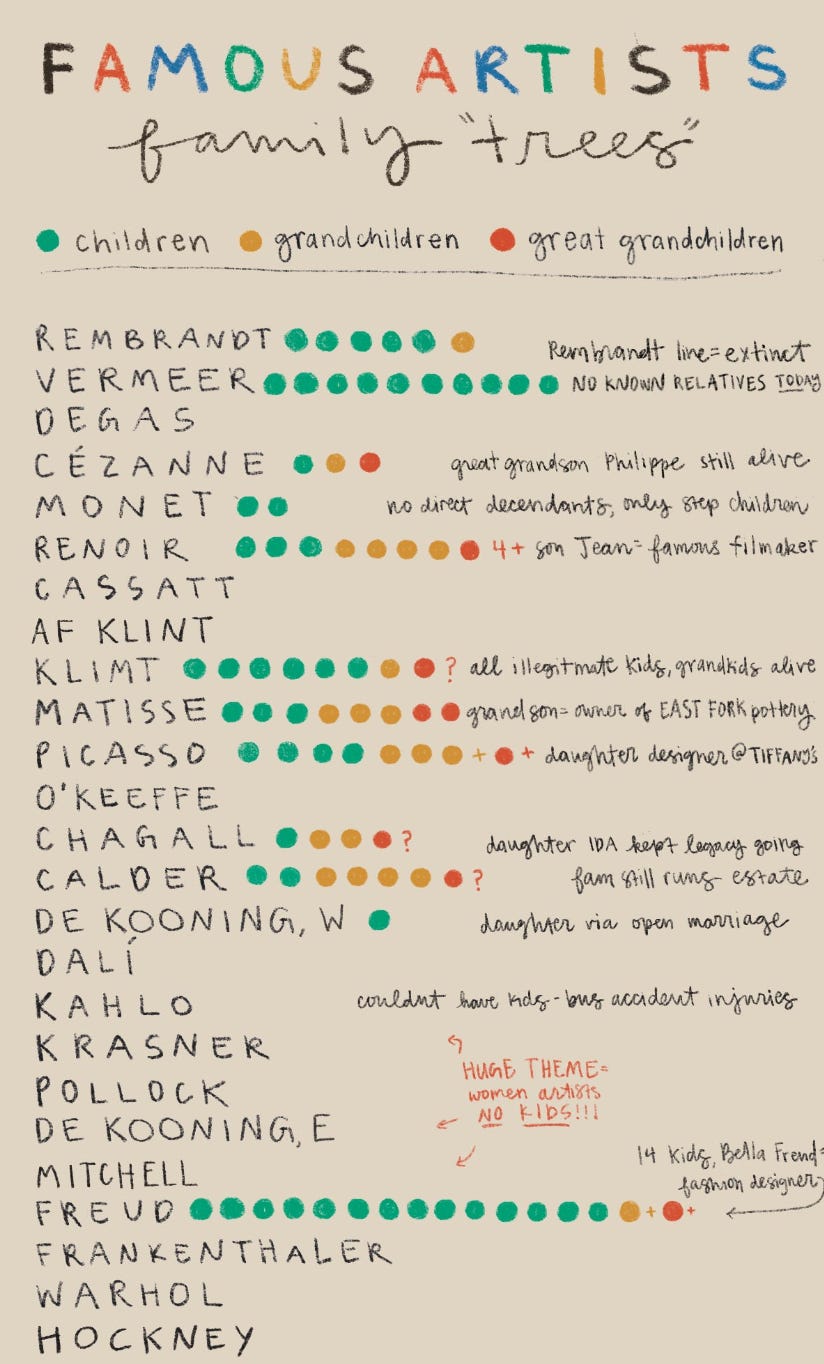 FAMOUS ARTISTS
family "trees"
children grandchildren great grandchildren
REMBRANDT Rembrandt line=extinct
VERMEER NO KNOWN RELATIVES TODAY
DEGAS
CÉZANNE great grandson Philippe still alive
MONET no direct decendants, only step children
RENOIR 4+ son Jean= famous filmaker
CASSATT
AF KLINT
KLIMT ? all illegitmate kids, grandkids alive
MATISSE grandson= owner of EAST FORK pottery
PICASSO + + daughter designer @ TIFFANY'S
O'KEEFFE
CHAGALL ? daughter IDA kept legacy going
CALDER ? fam still runs estate
DE KOONING, W daughter via open marriage
DALÍ
KAHLO couldnt have kids - bus accident injuries
KRASNER
HUGE THEME=
women artists
NO KIDS!!!
POLLOCK
DE KOONING, E
MITCHELL
14 kids, Bella Freud=
fashion designer
FREUD + +
FRANKENTHALER
WARHOL
HOCKNEY